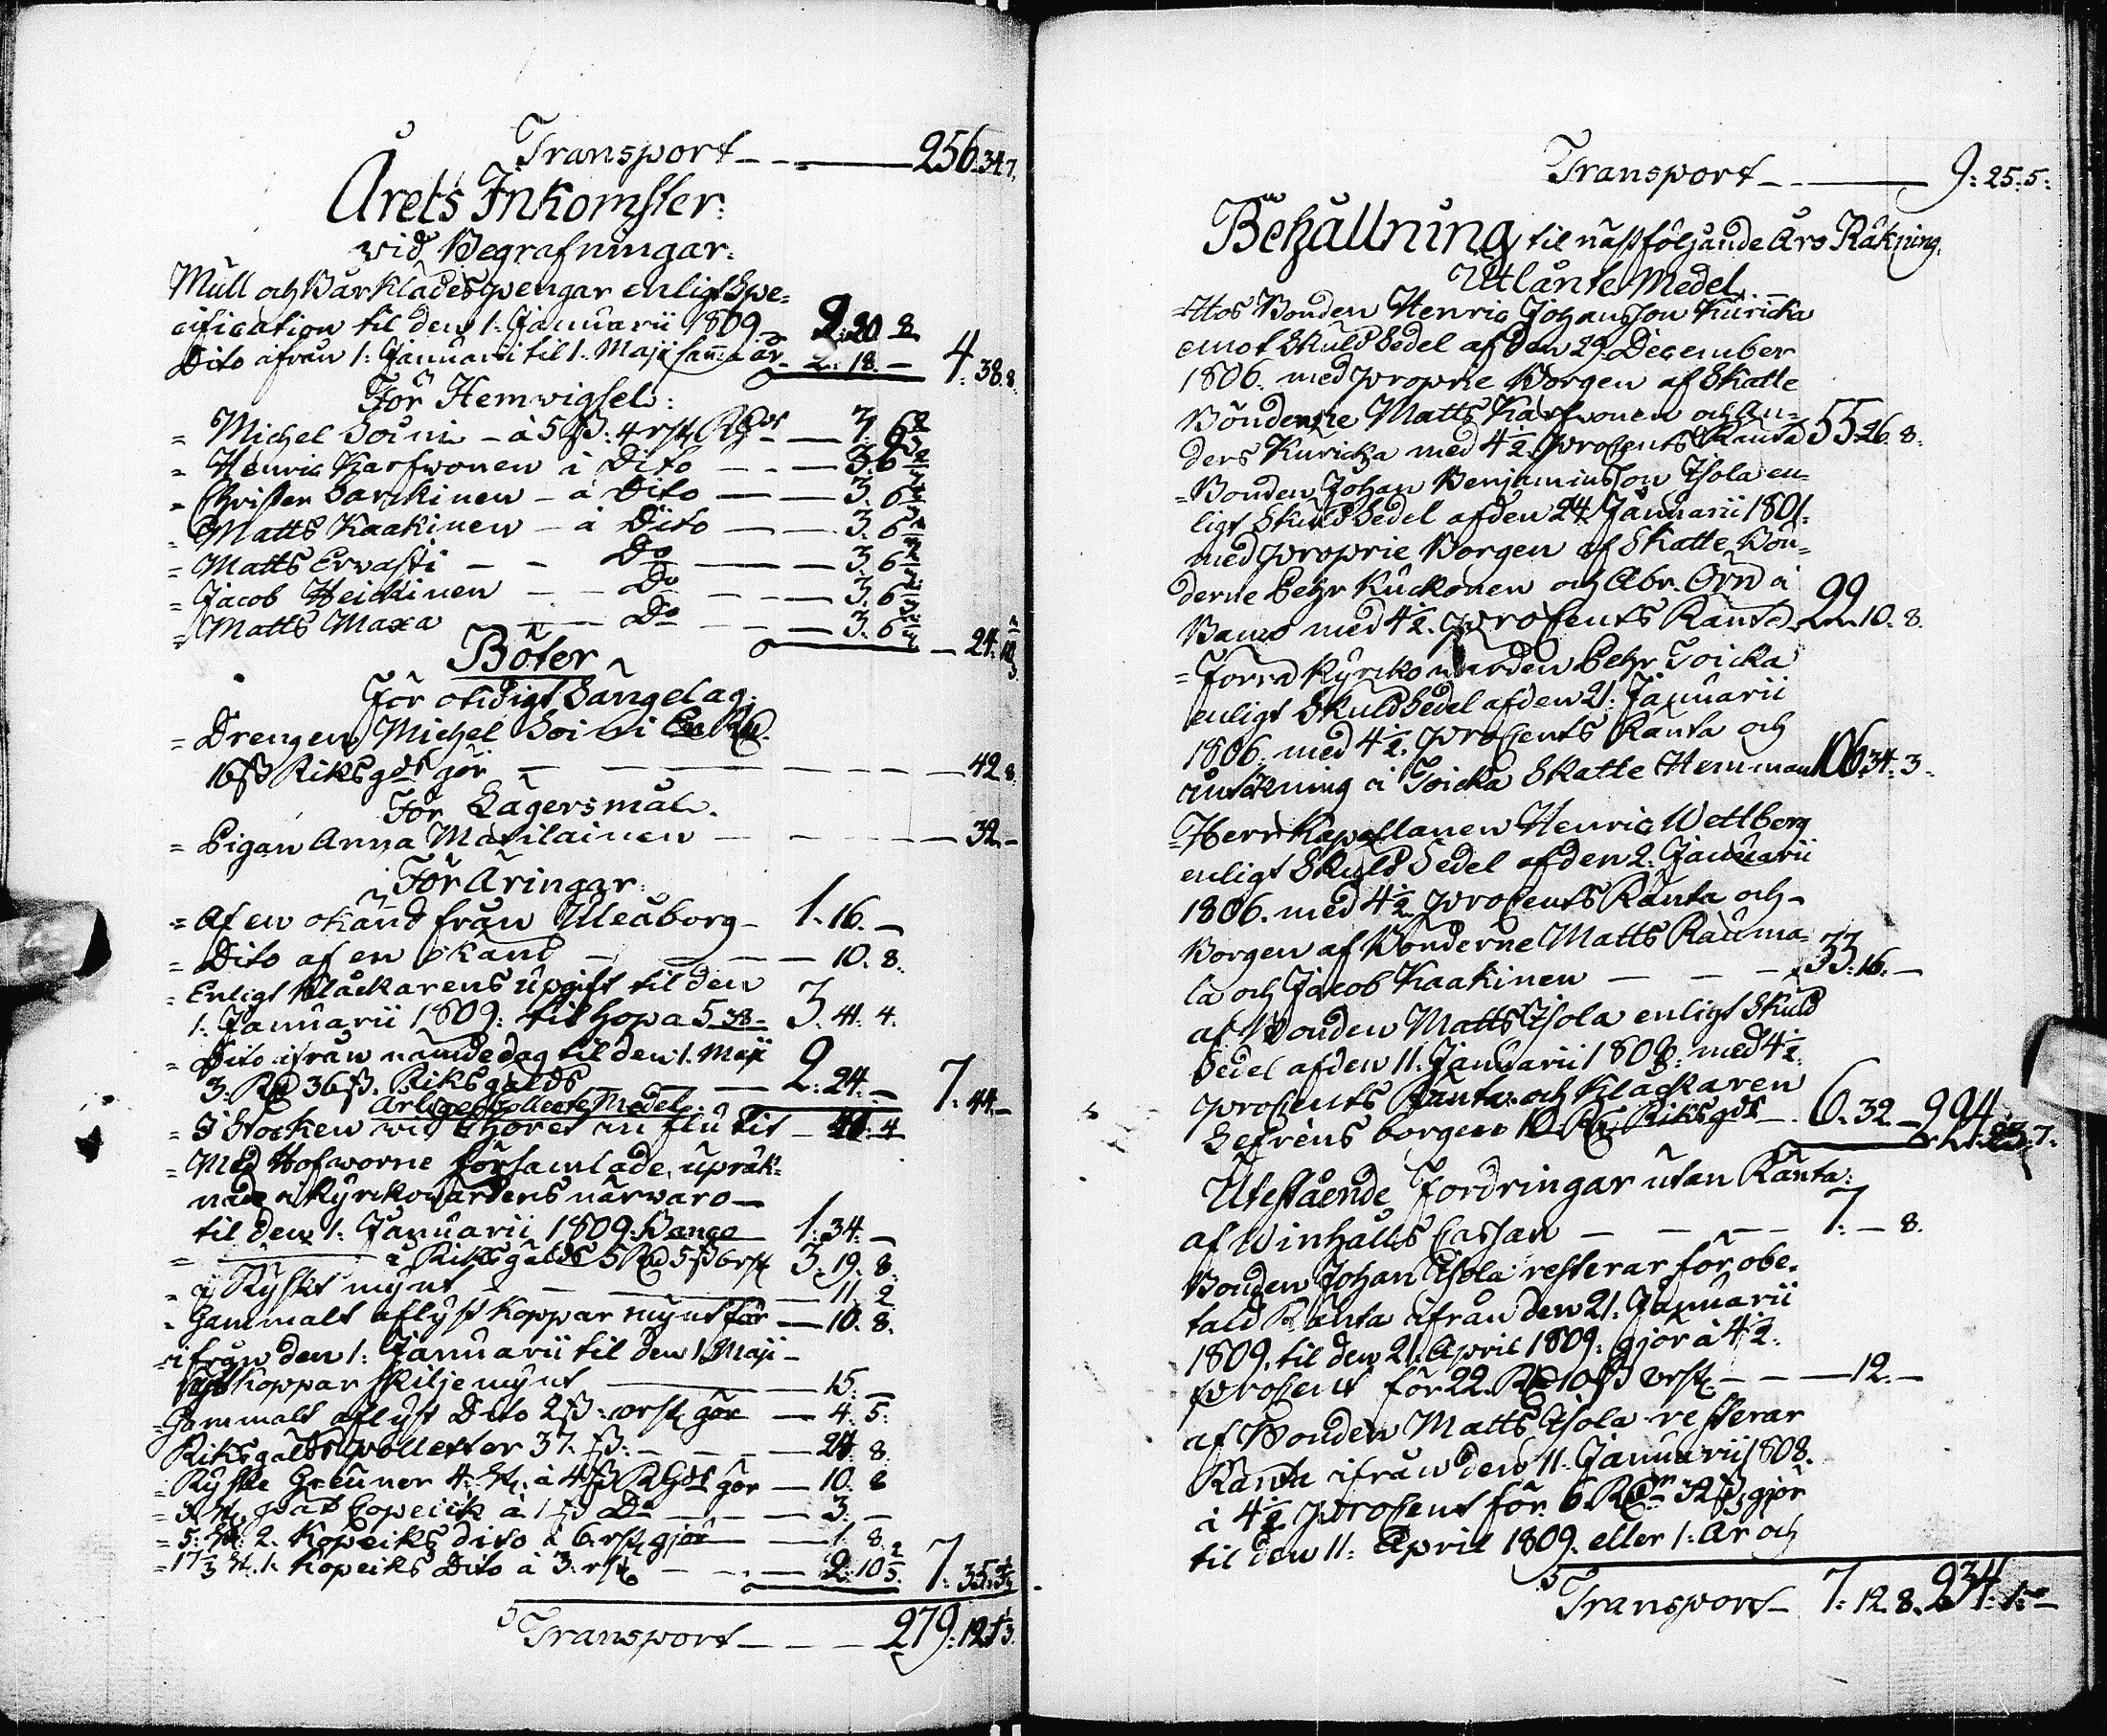 Transport - - 256.34.7.
Årets Inkomster:
vid Begrafningar:
Mull och Bårklädespengar enligt Spe=
cification til den 1: Januarii 1809 - 2.20.8
Dito ifrån 1: Januarii til 1: Maji samma år - 2.18. - 4.38.8.
För Hemvigsel:
= Michel Soini - à 5 ß: 4 rst.
= Henric Karfwonen à Dito - - 3.6
= Christer Sarckinen - à Dito - - 3.6
= Matts Kaakinen - à Dito - - 3.6
= Matts Ervasti - - Do - - 3.6
= Jacob Heickinen - - Do - - 3.6
= Matts Maxa - - Do - - 3.6 - 24.10
Böter
För otidigt Sängelag:
= Drengen Michel Soini En Rd.
16 ß Riksgds gör - - - 42.8.
För Lägersmål.
= Pigan Anna Matilainen - - - 32. -
Föräringar:
= Af en okänd från Uleåborg - 1.16. -
= Dito af en okänd - - - 10.8.
= Enligt Klåckarens upgift til den
1: Januarii 1809: tilhopa 5.38 - 3.41.4.
= Dito ifrån nämde dag til den 1. Maji
3. Rd 36 ß. Riksgälds - - 2.24. - 7.44 -
Årlige Collecte Medel
= I Stocken wid Choret influtit - 40.4
= Med Hofworne församlade, upräk=
nade i Kyrckowärdens närwaro -
til den 1: Januarii 1809. Banco 1:34. -
= - i Riksgälds 5 Rd 5 ß 6 rst 3.19.8.
= i Ryskt mynt - - - 11.2
= Gammalt aflyst Koppar mynt för - 10.8.
= ifrån den 1: Januarii til den 1 Maji -
Koppar Skiljemynt - - 15. -
= Gammalt aflyst Dito 2 ß: rst gör - 4.5.
Riksgälds polletter 37. ß. - - - 24.8.
= Ryske Greuner 4. st. à 4 ß RGds gör - 10.8
= Copeiik à 1 ß Do - - 3. -
= 5. st. 2. Kopeiks dito à 6. rst gjör - 1.8.
= 17 1/3 st. 1. Kopeiks Dito à 3. rst - - 2.10 2/3. 7.35.
Transport - - - 279.12.
Transport - - 9:25:5:
Behållning til nästföljande Års Räkning.
Utlånte Medel
= Hos Bonden Henric Johansson Kuricka
emot Skuld Sedel af den 29. December
1806. med proprie Borgen af Skatte
Bönderne Matts Karfwonen och An=
ders Kuricka med 4 1/2. procents Ränta 55.26.8.
= Bonden Johan Benjaminsson Isola en=
ligt Skuld Sedel af den 24. Januarii 1801.
med proprie Borgen af Skatte Bön=
derne Pehr Kuckonen och Abr. Örn à
med 4 1/2. procents Ränta 22.10.8.
= Förra Kyrckowärden Pehr Toicka
enligt Skuld Sedel af den 21. Januarii
1806. med 4 1/2. procents Ränta och
inteckning i Toicka Skatte Hemman 106.34.3.
= Herr Kapellanen Henric Wettberg
enligt Skuld Sedel af den 2. Januarii
1806. med 4 1/2 procents Ränta och -
Borgen af Bönderne Matts Rauma=
la och Jacob Kaakinen - - - 33.16. -
af Bonden Matts Isola enligt Skuld
Sedel af den 11. Januarii 1808: med 4 1/2.
procents Ränta och Klåckaren
Lefrens borgen 10 Rd Riksgds - 6.32. - 224.23.7.
Utestående Fordringar utan Ränta:
af Winhalls Cassan - - - 7: - 8.
Bonden Johan Isola resterar för obe=
tald Ränta ifrån den 21. Januarii
1809. til den 21. April 1809. gjör à 4 1/2.
procent för 22. Rd 10 ß 8 rst - - - 12. -
af Bonden Matts Isola resterar
Ränta ifrån den 11. Januarii 1808.
à 4 1/2 procent för 6. Rdr 32 ß, gjör
til den 11. April 1809. eller 1. År och
Transport - 7.12.8. 234.1. -